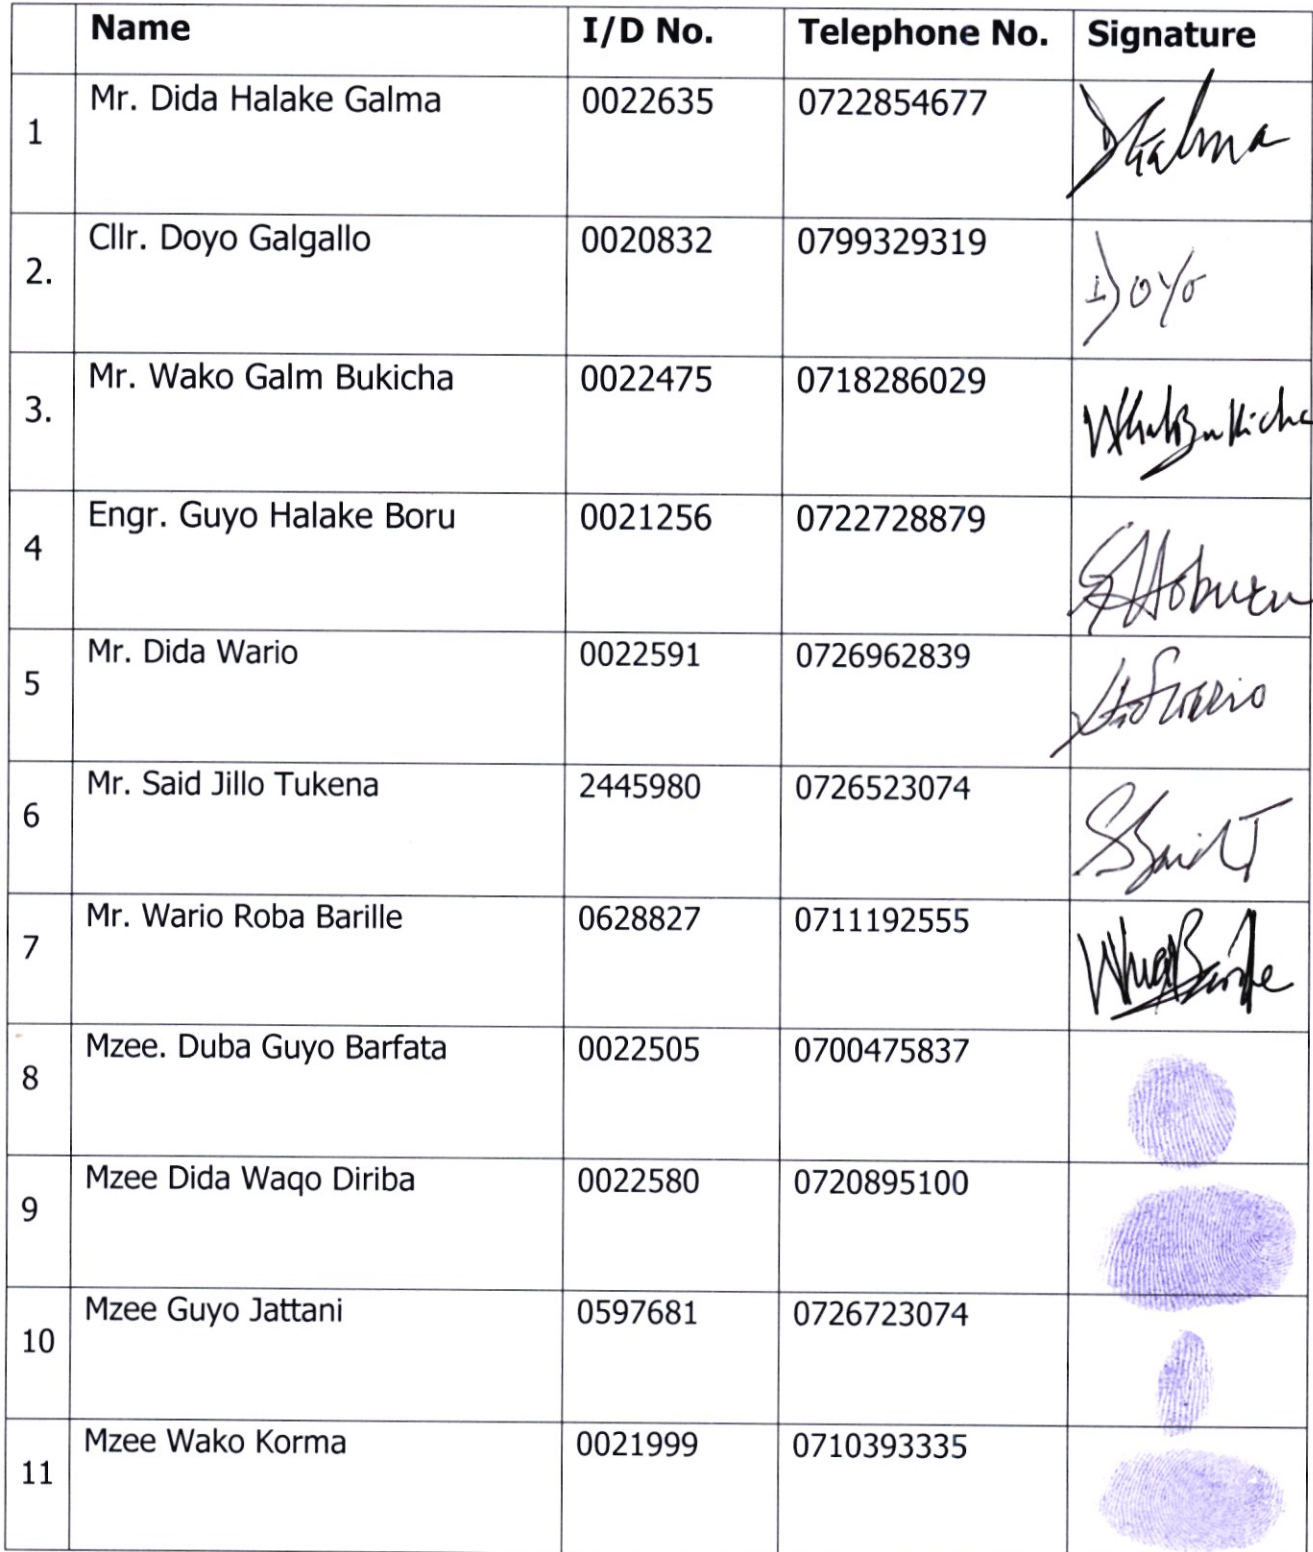 Name I/D No. Telephone No. Signature
1 Mr. Dida Halake Galma 0022635 0722854677 DHalma
2. Cllr. Doyo Galgallo 0020832 0799329319 Doyo
3. Mr. Wako Galm Bukicha 0022475 0718286029
4 Engr. Guyo Halake Boru 0021256 0722728879
5 Mr. Dida Wario 0022591 0726962839
6 Mr. Said Jillo Tukena 2445980 0726523074
7 Mr. Wario Roba Barille 0628827 0711192555
8 Mzee. Duba Guyo Barfata 0022505 0700475837
9 Mzee Dida Waqo Diriba 0022580 0720895100
10 Mzee Guyo Jattani 0597681 0726723074
11 Mzee Wako Korma 0021999 0710393335